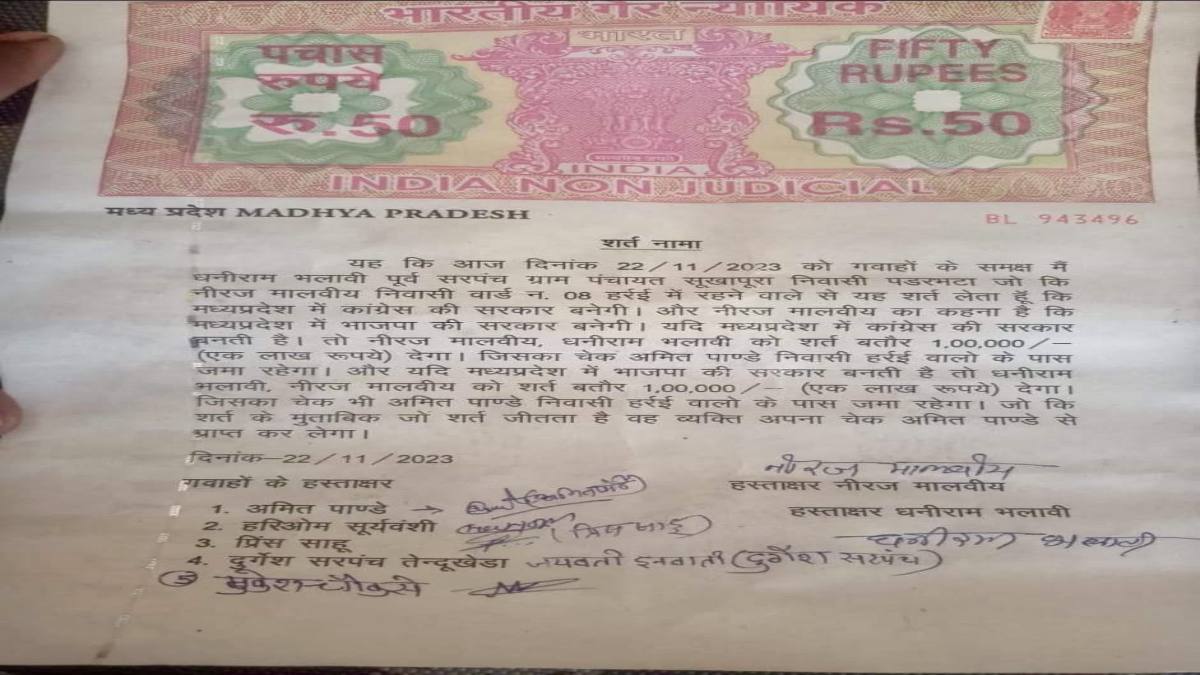 भारतीय गैर न्यायिक
भारत
पचास
रुपये
रु.50
FIFTY
RUPEES
Rs.50
INDIA
INDIA NON JUDICIAL
मध्य प्रदेश MADHYA PRADESH
BL 943496
शर्त नामा
यह कि आज दिनांक 22/11/2023 को गवाहों के समक्ष मैं
धनीराम भलावी पूर्व सरपंच ग्राम पंचायत सूखापूरा निवासी पडरमटा जो कि
नीरज मालवीय निवासी वार्ड न. 08 हर्रई में रहने वाले से यह शर्त लेता हूॅ कि
मध्यप्रदेश में कांग्रेस की सरकार बनेगी। और नीरज मालवीय का कहना है कि
मध्यप्रदेश में भाजपा की सरकार बनेगी। यदि मध्यप्रदेश में कांग्रेस की सरकार
बनती है। तो नीरज मालवीय, धनीराम भलावी को शर्त बतौर 1,00,000/–
(एक लाख रूपये) देगा। जिसका चेक अमित पाण्डे निवासी हर्रई वालो के पास
जमा रहेगा। और यदि मध्यप्रदेश में भाजपा की सरकार बनती है तो धनीराम
भलावी, नीरज मालवीय को शर्त बतौर 1,00,000/– (एक लाख रूपये) देगा।
जिसका चेक भी अमित पाण्डे निवासी हर्रई वालो के पास जमा रहेगा। जो कि
शर्त के मुताबिक जो शर्त जीतता है वह व्यक्ति अपना चेक अमित पाण्डे से
प्राप्त कर लेगा।
दिनांक–22/11/2023
नीरज मालवीय
गवाहों के हस्ताक्षर
हस्ताक्षर नीरज मालवीय
1. अमित पाण्डे →
हस्ताक्षर धनीराम भलावी
2. हरिओम सूर्यवंशी
3. प्रिंस साहू (प्रिंस साहू)
धनीराम भलावी
4. दुर्गेश सरपंच तेन्दूखेडा जयवती इनवाती (दुर्गेश सरपंच)
5 मुकेश चौकसे